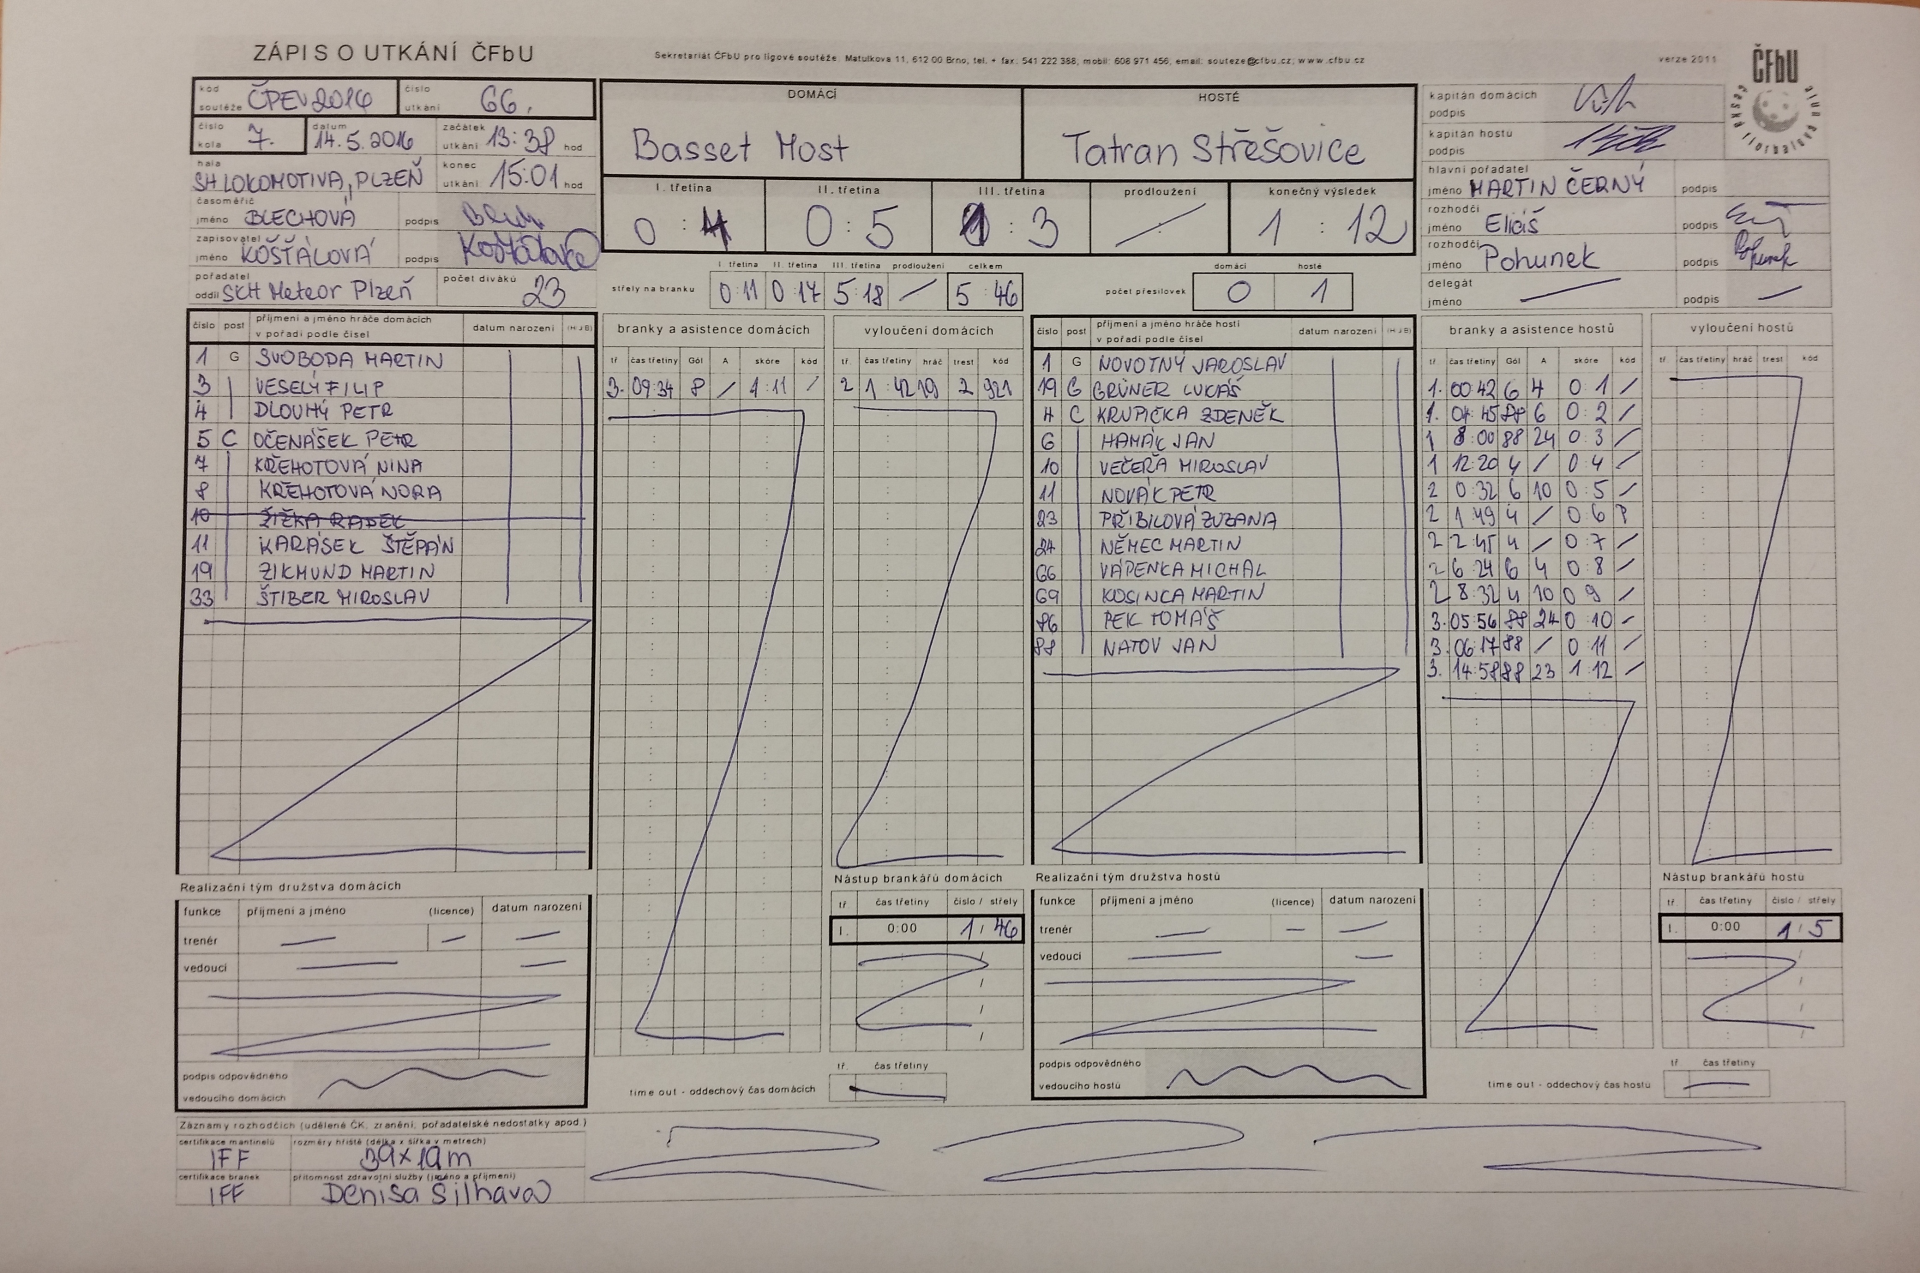 ZÁPIS O UTKÁNÍ ČFbU
Sekretariát ČFbU pro ligové soutěže: Matulkova 11, 612 00 Brno, tel. + fax: 541 222 388, mobil: 608 971 456, email: souteze@cfbu.cz, www.cfbu.cz
verze 2011
ČFbU
česká florbalová unie
kód soutěže ČPEV 2016
číslo utkání 66.
číslo kola 7.
datum 14.5.2016
začátek utkání 13:38 hod
hala SH LOKOMOTIVA, PLZEŇ
konec utkání 15:01 hod
časoměřič jméno BLECHOVÁ podpis
zapisovatel jméno KOŠŤÁLOVÁ podpis Košťálová
pořadatel oddíl SKH Meteor Plzeň
počet diváků 23
DOMÁCÍ
HOSTÉ
Basset Most
Tatran Střešovice
I. třetina II. třetina III. třetina prodloužení konečný výsledek
0 : 4 0 : 5 1 : 3 / 1 : 12
I. třetina II. třetina III. třetina prodloužení celkem
střely na branku 0:11 0:17 5:18 / 5 46
domácí hosté
počet přesilovek 0 1
kapitán domácích podpis
kapitán hostů podpis
hlavní pořadatel jméno MARTIN ČERNÝ podpis
rozhodčí jméno Eliáš podpis
rozhodčí jméno Pohunek podpis Pohunek
delegát jméno — podpis —
číslo post příjmení a jméno hráče domácích v pořadí podle čísel datum narození (H J B)
1 G SVOBODA MARTIN
3 VESELÝ FILIP
4 DLOUHÝ PETR
5 C OČENÁŠEK PETR
7 KŘEHOTOVÁ NINA
8 KŘEHOTOVÁ NORA
10 ŽIŽKA RADEK
11 KARÁSEK ŠTĚPÁN
19 ZIKMUND MARTIN
33 ŠTIBER MIROSLAV
branky a asistence domácích
tř čas třetiny Gól A skóre kód
3. 09:34 8 / 1:11 /
vyloučení domácích
tř. čas třetiny hráč trest kód
2 1:42 19 2 921
číslo post příjmení a jméno hráče hostí v pořadí podle čísel datum narození (H J B)
1 G NOVOTNÝ JAROSLAV
19 G GRÜNER LUKÁŠ
4 C KRUPIČKA ZDENĚK
6 HAMÁK JAN
10 VEČEŘA MIROSLAV
11 NOVÁK PETR
23 PŘIBILOVÁ ZUZANA
24 NĚMEC MARTIN
66 VÁPENKA MICHAL
69 KOSINCA MARTIN
86 PEK TOMÁŠ
88 NATOV JAN
branky a asistence hostů
tř. čas třetiny Gól A skóre kód
1. 00:42 6 4 0:1 /
1. 04:45 88 6 0:2 /
1 8:00 88 24 0:3 /
1 12:20 4 / 0:4 /
2 0:32 6 10 0:5 /
2 1:49 4 / 0:6 P
2 2:45 4 / 0:7 /
2 6:24 6 4 0:8 /
2 8:32 4 10 0:9 /
3. 05:56 88 24 0:10 /
3. 06:17 88 / 0:11 /
3. 14:58 88 23 1:12 /
vyloučení hostů
tř čas třetiny hráč trest kód
Realizační tým družstva domácích
funkce příjmení a jméno (licence) datum narození
trenér — — —
vedoucí — —
podpis odpovědného vedoucího domácích
Nástup brankářů domácích
tř. čas třetiny číslo / střely
I. 0:00 1 / 46
tř. čas třetiny
time out - oddechový čas domácích —
Realizační tým družstva hostů
funkce příjmení a jméno (licence) datum narození
trenér — — —
vedoucí — —
podpis odpovědného vedoucího hostů
Nástup brankářů hostů
tř. čas třetiny číslo / střely
I. 0:00 1 / 5
tř. čas třetiny
time out - oddechový čas hostů —
Záznamy rozhodčích (udělené ČK, zranění, pořadatelské nedostatky apod.)
certifikace mantinelů IFF
rozměry hřiště (délka x šířka v metrech) 39x19m
certifikace branek IFF
přítomnost zdravotní služby (jméno a příjmení) Denisa Šilhavá